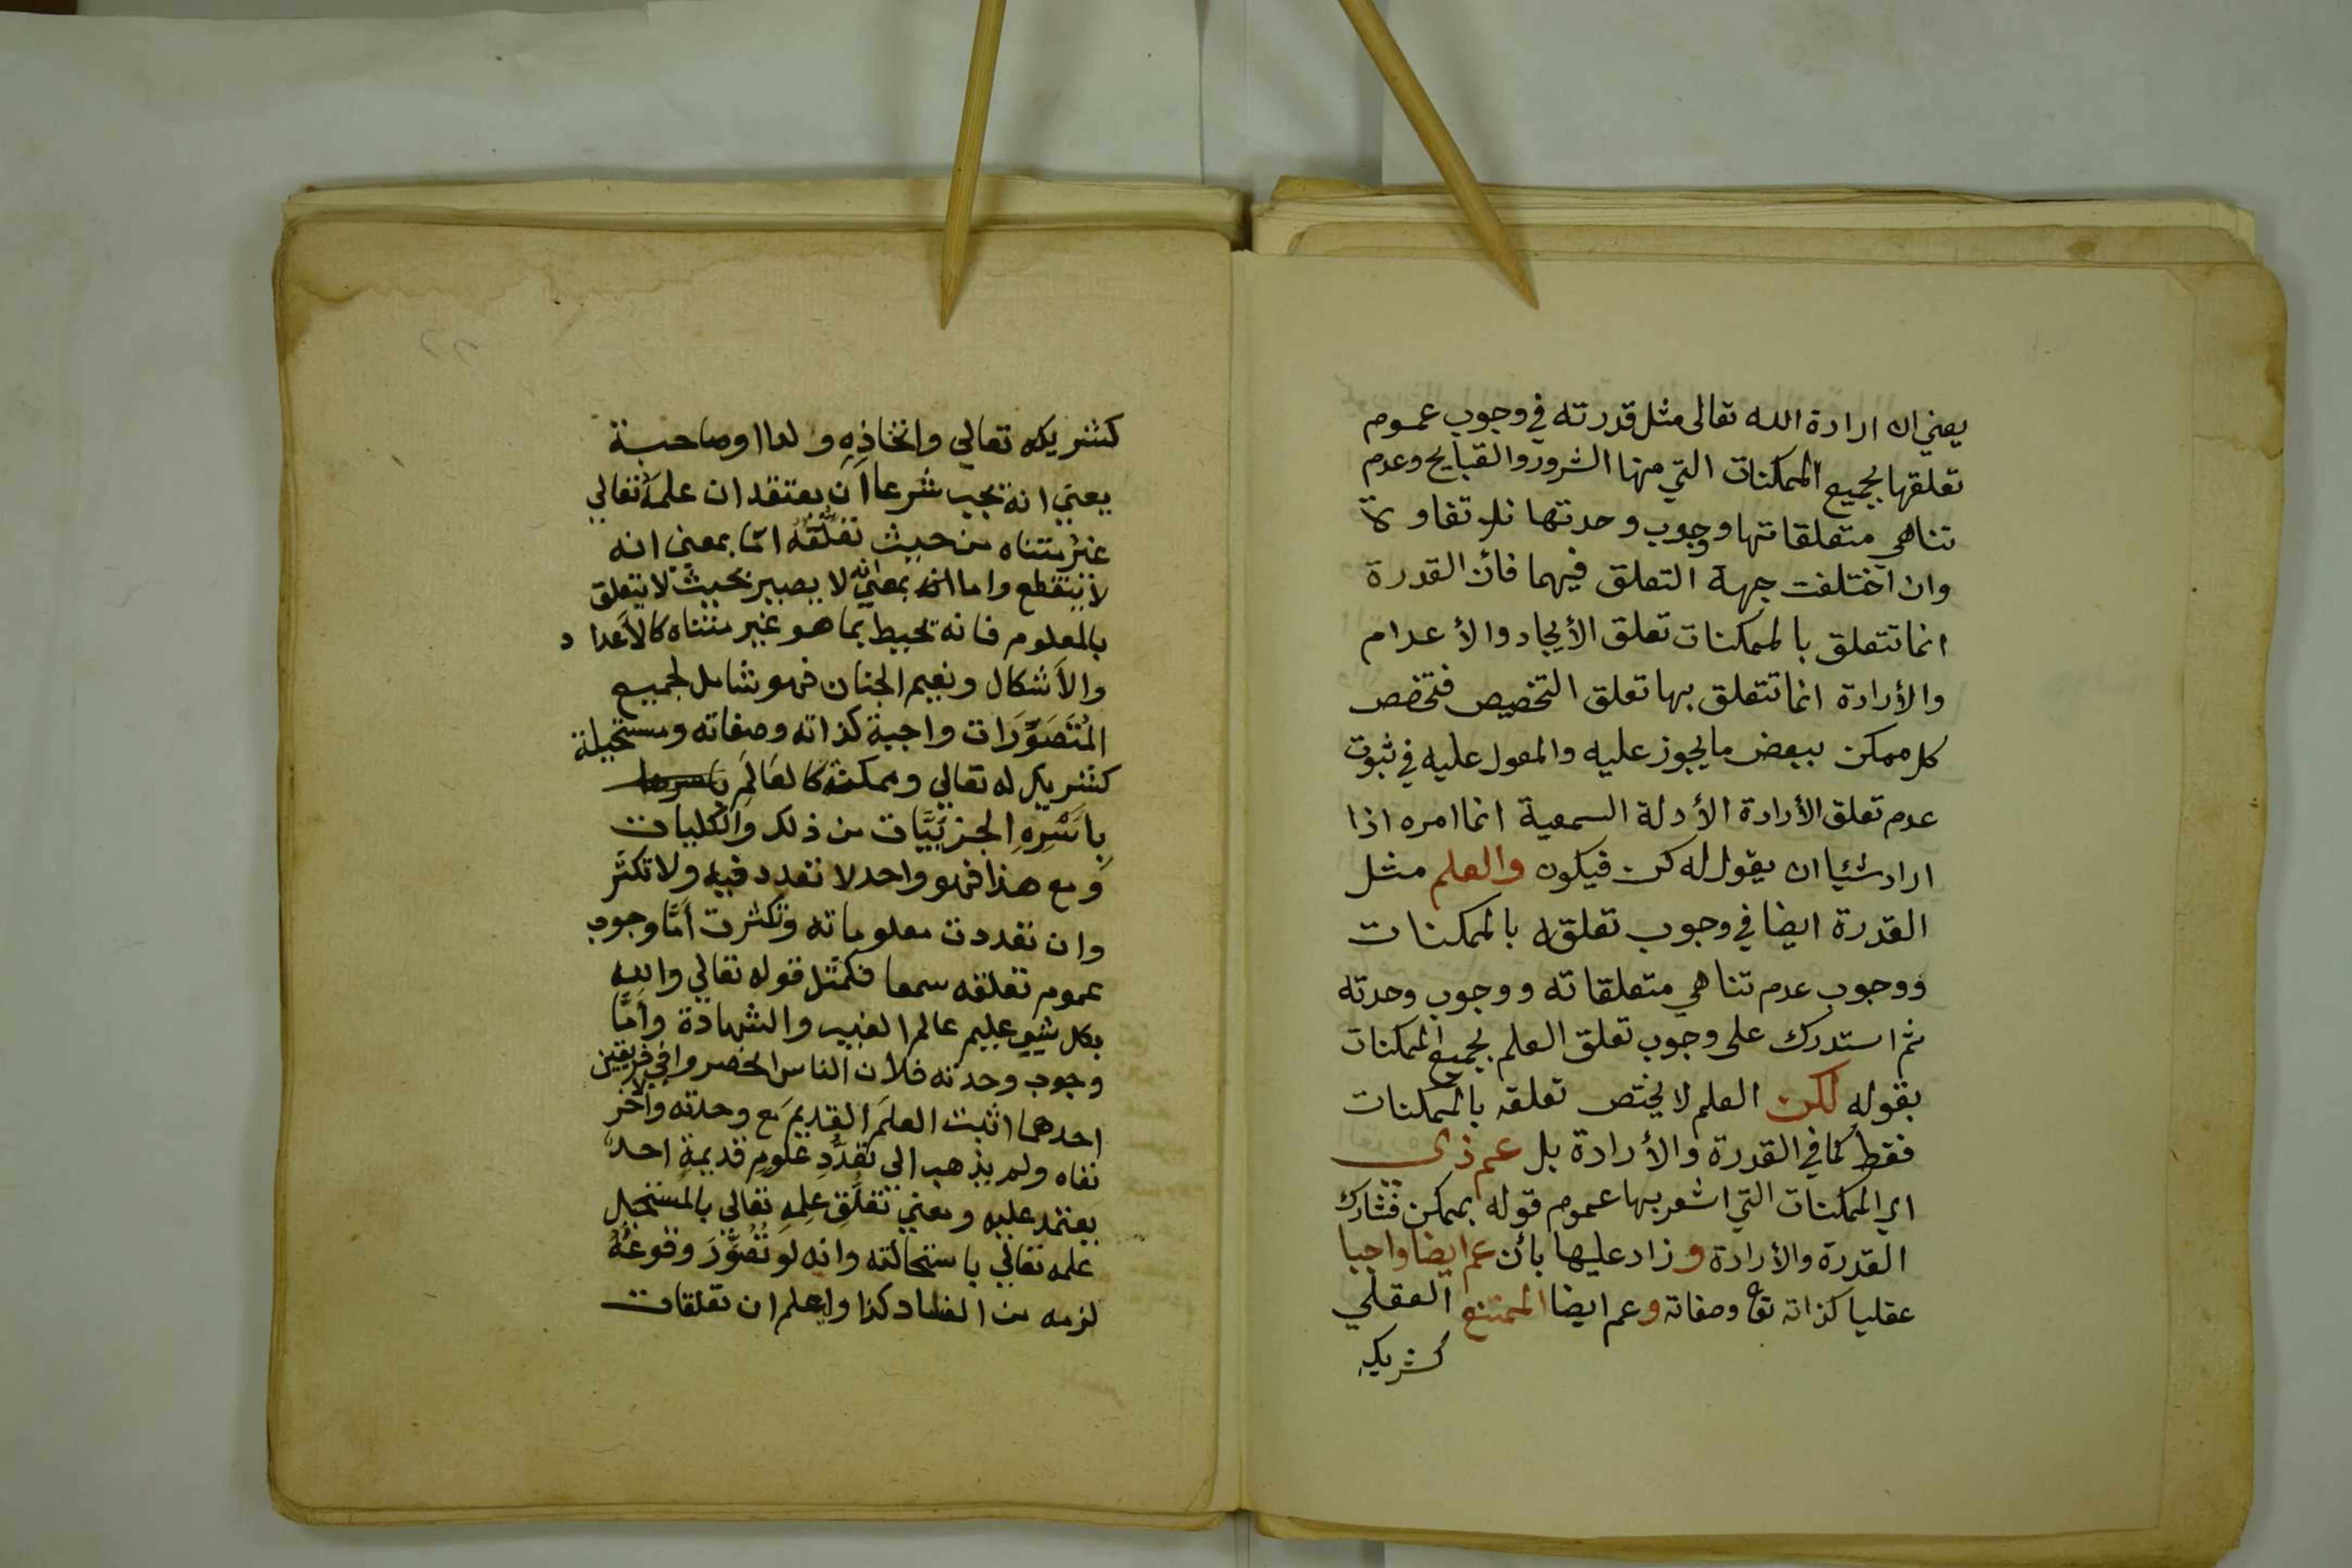 يعني ان ارادة الله تعالى مثل قدرته في وجوب عموم
تعلقها بجميع الممكنات التي منها الشرور والقبايح وعدم
تناهي متعلقاتها ووجوب وحدتها بلا تفاوت
وان اختلفت جهة التعلق فيهما فأن القدرة
انما تتعلق بالممكنات تعلق الأيجاد والأعدام
والأرادة انما تتعلق بها تعلق التخصيص فتخصص
كل ممكن ببعض ما يجوز عليه والمعول عليه في ثبوت
عدم تعلق الأرادة الأدلة السمعية انما امره اذا
اراد شئيا ان يقول له كن فيكون والعلم مثل
القدرة ايضا في وجوب تعلقه بالممكنات
ووجوب عدم تناهي متعلقاته ووجوب وحدته
ثم استدرك على وجوب تعلق العلم بجميع الممكنات
بقوله لكن العلم لا يختص تعلقه بالممكنات
فقط كما في القدرة والأرادة بل عم ذي
اي الممكنات التي اشعر بها عموم قوله بممكن فشارك
القدرة والأرادة و زاد عليها بأن عم ايضا واجبا
عقليا كذاته تع وصفاته وعم ايضا الممتنع العقلي
كشريكه
كشريكه تعالي واتخاذِهِ ولدا او صاحبة
يعني انه يجب شرعا اَن يعتقد ان علمَهُ تعالي
غيرُ متناه من حيث تعلُّقُه امّا بمعني انه
لا ينقطع واما انه بمعني انه لا يصير بحيث لا يتعلق
بالمعلوم فانه يحيط بما هو غير متناه كالاَعداد
والاَشكال ونعيم الجنان فهو شامل لجميع
المُتَصَوَّرَات واجبة كذاته وصفاته ومستحيلة
كشريك له تعالي وممكنة كالعَالَمِ
بِاَسْرِهِ الجزيَّيات من ذلك والكليات
وَمع هذا فهو واحد لا تعدد فيه ولا تكثّر
وان تعددت معلوماته وتكثرت اَمَّا وجوب
عموم تعلقه سمعا فكمثل قوله تعالي والله
بكل شيء عليم عالم الغيب والشهادة واَمَّا
وجوب وحدته فلاَن الناس انحصروا في فريقين
احدهما اثبت العلمَ القديمَ مَع وحدته والاخر
نفاه ولم يذهب الي تعدُّدِ علومٍ قديمةٍ احدٌ
يعتمد عليه ومعني تعلُّقِ علِمهِ تعالي بالمستحيل
علمه تعالي باستحالته وانه لو تُصُوِّرَ وقوعُهُ
لزمه من الفساد كذا واعلم ان تعلقات